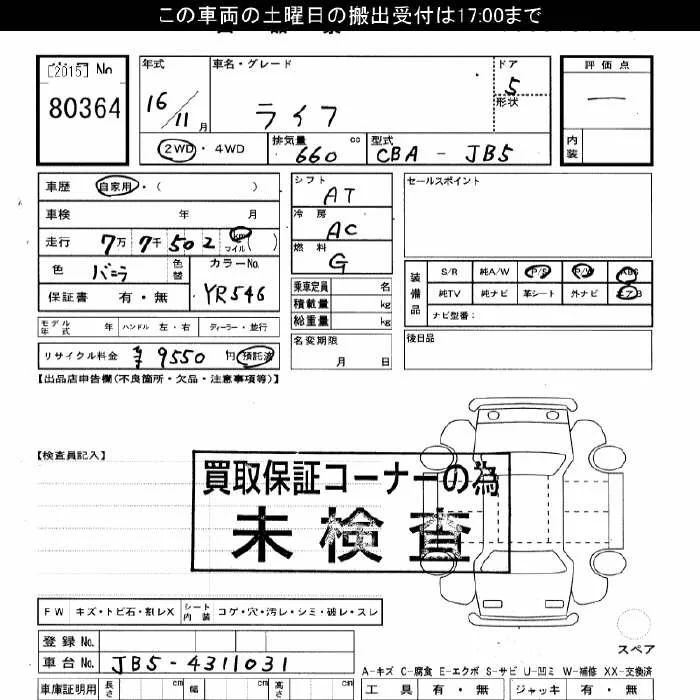 この車両の土曜日の搬出受付は17:00まで
[2015] No
80364
年式 車名・グレード ドア 評価点
16/11月 ライフ 5 —
形状
2WD・4WD 排気量 660 cc 型式 CBA - JB5 内装
車歴 自家用・( )
車検 年 月
走行 7万7千502 km マイル( )
色 バニラ 色替 カラーNo. YR546
保証書 有・無
モデル年式 年 ハンドル 左・右 ディーラー・並行
リサイクル料金 ¥9550円 預託済
シフト AT
冷房 AC
燃料 G
乗車定員 名
積載量 kg
総重量 kg
名変期限 月 日
セールスポイント
装備品 S/R 純A/W P/S P/W ABS
純TV 純ナビ 革シート 外ナビ エアB
ナビ型番:
後日品
【出品店申告欄(不良箇所・欠品・注意事項等)】
【検査員記入】
買取保証コーナーの為
未検査
FW キズ・トビ石・割レX シート内装 コゲ・穴・汚レ・シミ・破レ・スレ
登録No.
車台No. JB5-4311031
車庫証明用 長さ cm 幅 cm 高さ cm
スペア
A-キズ C-腐食 E-エクボ S-サビ U-凹ミ W-補修 XX-交換済
工具 有・無 ジャッキ 有・無